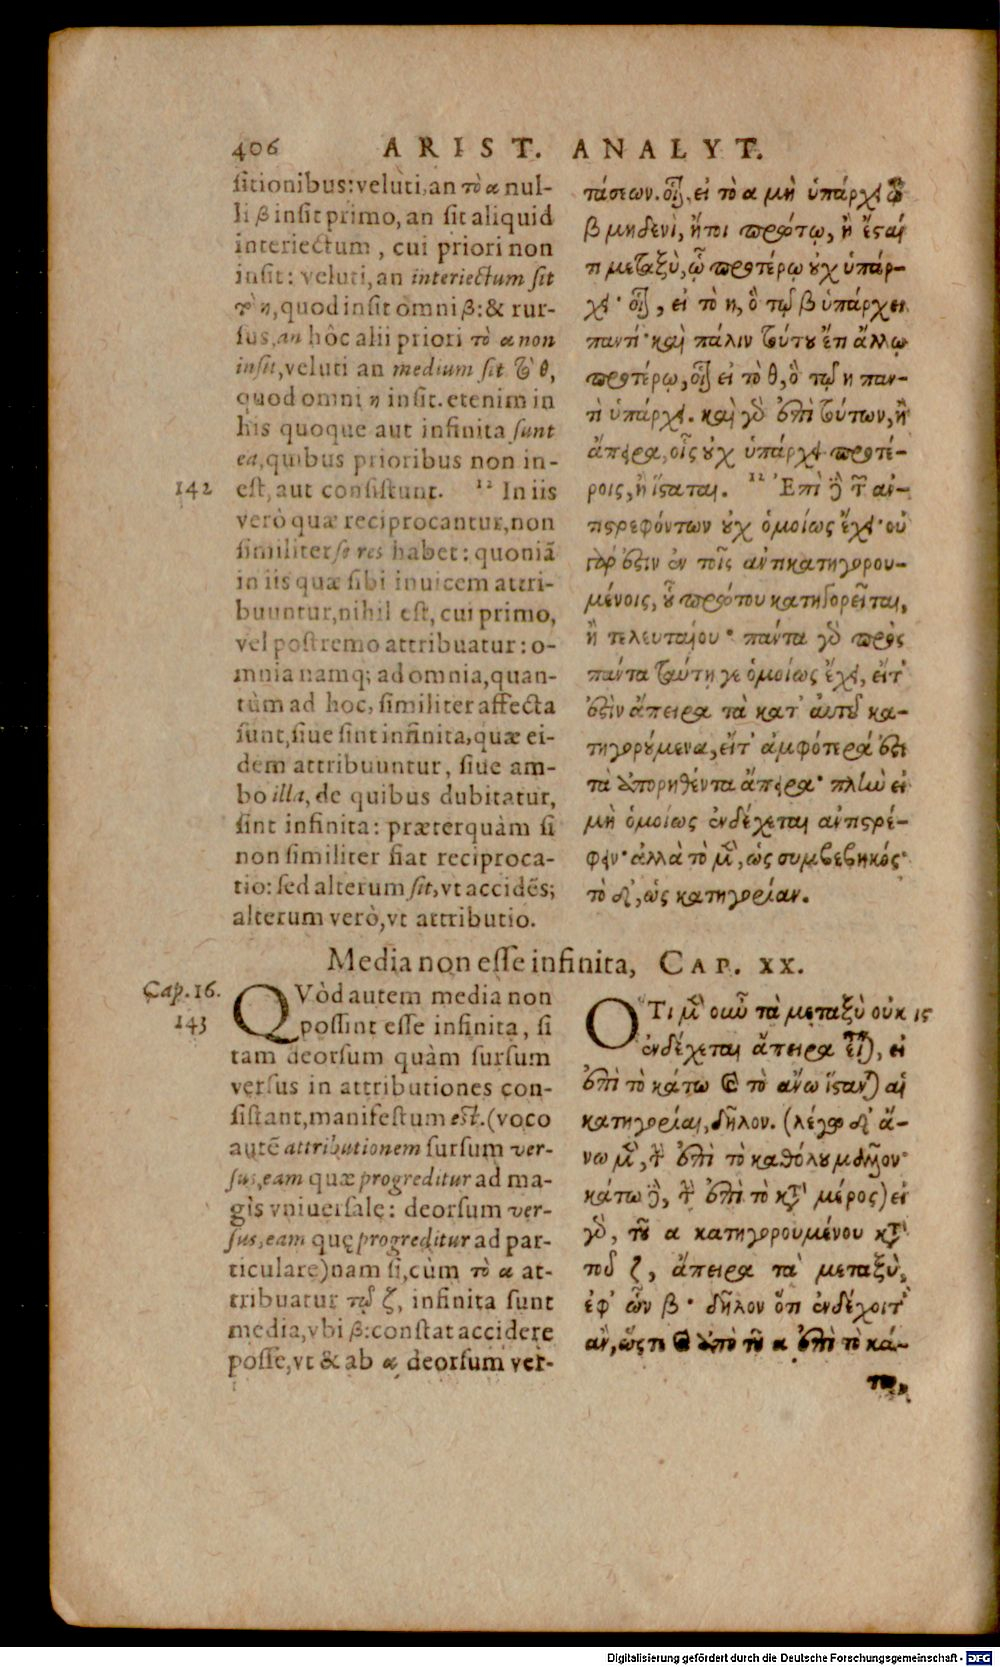 406 ARIST. ANALYT.
sitionibus: velùti, an τὸ α nul-
li β insit primo, an sit aliquid
interiectum, cui priori non
insit: veluti, an interiectum sit
τὸ η, quod insit omni β: & rur-
sus, an hôc alii priori τὸ α non
insit, veluti an medium sit τὸ θ,
quod omni η insit. etenim in
his quoque aut infinita sunt
ea, quibus prioribus non in-
142
est, aut consistunt. 12 In iis
verò quæ reciprocantur, non
similiter se res habet: quoniã
in iis quæ sibi inuicem attri-
buuntur, nihil est, cui primo,
vel postremo attribuatur: o-
mnia namq; ad omnia, quan-
tùm ad hoc, similiter affecta
sunt, siue sint infinita, quæ ei-
dem attribuuntur, siue am-
bo illa, de quibus dubitatur,
sint infinita: præterquàm si
non similiter fiat reciproca-
tio: sed alterum sit, vt accidẽs;
alterum verò, vt attributio.
τάσεων. οἷον, εἰ τὸ α μὴ ὑπάρχει τῷ
β μηδενὶ, ἤτοι πρώτῳ, ἢ ἔσται
τι μεταξὺ, ᾧ προτέρῳ οὐχ ὑπάρ-
χει· οἷον, εἰ τὸ η, ὃ τῷ β ὑπάρχει
παντί· καὶ πάλιν τούτου ἔτι ἄλλῳ
προτέρῳ, οἷον εἰ τὸ θ, ὃ τῷ η παν-
τὶ ὑπάρχει. καὶ γὸ ἐπὶ τούτων, ἢ
ἄπειρα, οἷς οὐχ ὑπάρχει προτέ-
ροις, ἢ ἵσταται. 12 Ἐπὶ δὲ τῶν ἀν-
τιστρεφόντων οὐχ ὁμοίως ἔχει· οὐ
γάρ ἐστιν ἐν τοῖς ἀντικατηγορου-
μένοις, οὗ πρώτου κατηγορεῖται,
ἢ τελευταίου· πάντα γὸ πρὸς
πάντα ταύτῃ γε ὁμοίως ἔχει, εἴτ'
ἐστὶν ἄπειρα τὰ κατ' αὐτοῦ κα-
τηγορούμενα, εἴτ' ἀμφότερά ἐστι
τὰ ἀπορηθέντα ἄπειρα· πλὴν εἰ
μὴ ὁμοίως ἐνδέχεται ἀντιστρέ-
φειν· ἀλλὰ τὸ μὲν, ὡς συμβεβηκός·
τὸ δ', ὡς κατηγορίαν.
Media non esse infinita, CAP. XX.
Cap. 16.
143
QVòd autem media non
possint esse infinita, si
tam deorsum quàm sursum
versus in attributiones con-
sistant, manifestum est. (voco
autẽ attributionem sursum ver-
sus, eam quæ progreditur ad ma-
gis vniuersale: deorsum ver-
sus, eam quę progreditur ad par-
ticulare) nam si, cùm τὸ α at-
tribuatur τῷ ζ, infinita sunt
media, vbi β: constat accidere
posse, vt & ab α deorsum ver-
Ὅτι μὲν οὖν τὰ μεταξὺ οὐκ
ἐνδέχεται ἄπειρα εἶναι, εἰ
ἐπὶ τὸ κάτω καὶ τὸ ἄνω ἵστανται αἱ
κατηγορίαι, δῆλον. (λέγω δ' ἄ-
νω μὲν, τὴν ἐπὶ τὸ καθόλου μᾶλλον·
κάτω δὲ, τὴν ἐπὶ τὸ κατὰ μέρος) εἰ
γὸ, τοῦ α κατηγορουμένου κατὰ
τοῦ ζ, ἄπειρα τὰ μεταξὺ,
ἐφ' ὧν β· δῆλον ὅτι ἐνδέχοιτ'
ἂν, ὥστε καὶ ἀπὸ τοῦ α ἐπὶ τὸ κά-
τω,
Digitalisierung gefördert durch die Deutsche Forschungsgemeinschaft - DFG